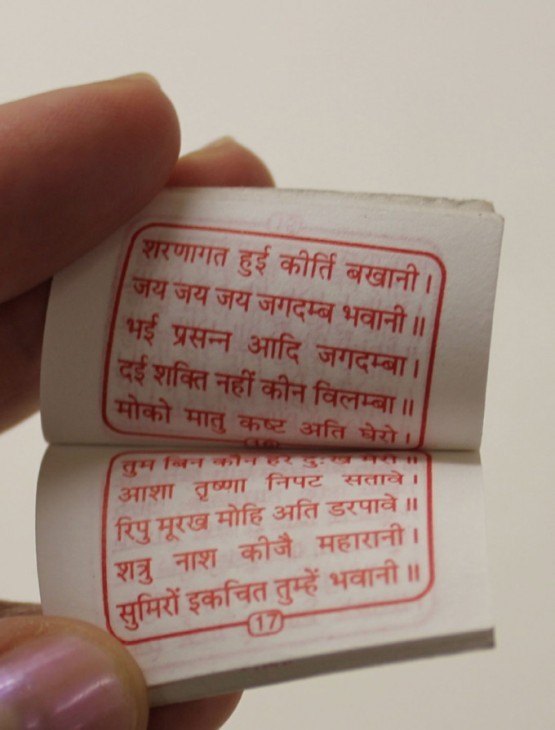 शरणागत हुई कीर्ति बखानी।
जय जय जय जगदम्ब भवानी॥
भई प्रसन्न आदि जगदम्बा।
दई शक्ति नहीं कीन विलम्बा॥
मोको मातु कष्ट अति घेरो।
तुम बिन कौन हरे दुःख मेरो॥
आशा तृष्णा निपट सतावे।
रिपु मूरख मोहि अति डरपावे॥
शत्रु नाश कीजै महारानी।
सुमिरों इकचित तुम्हें भवानी॥
17